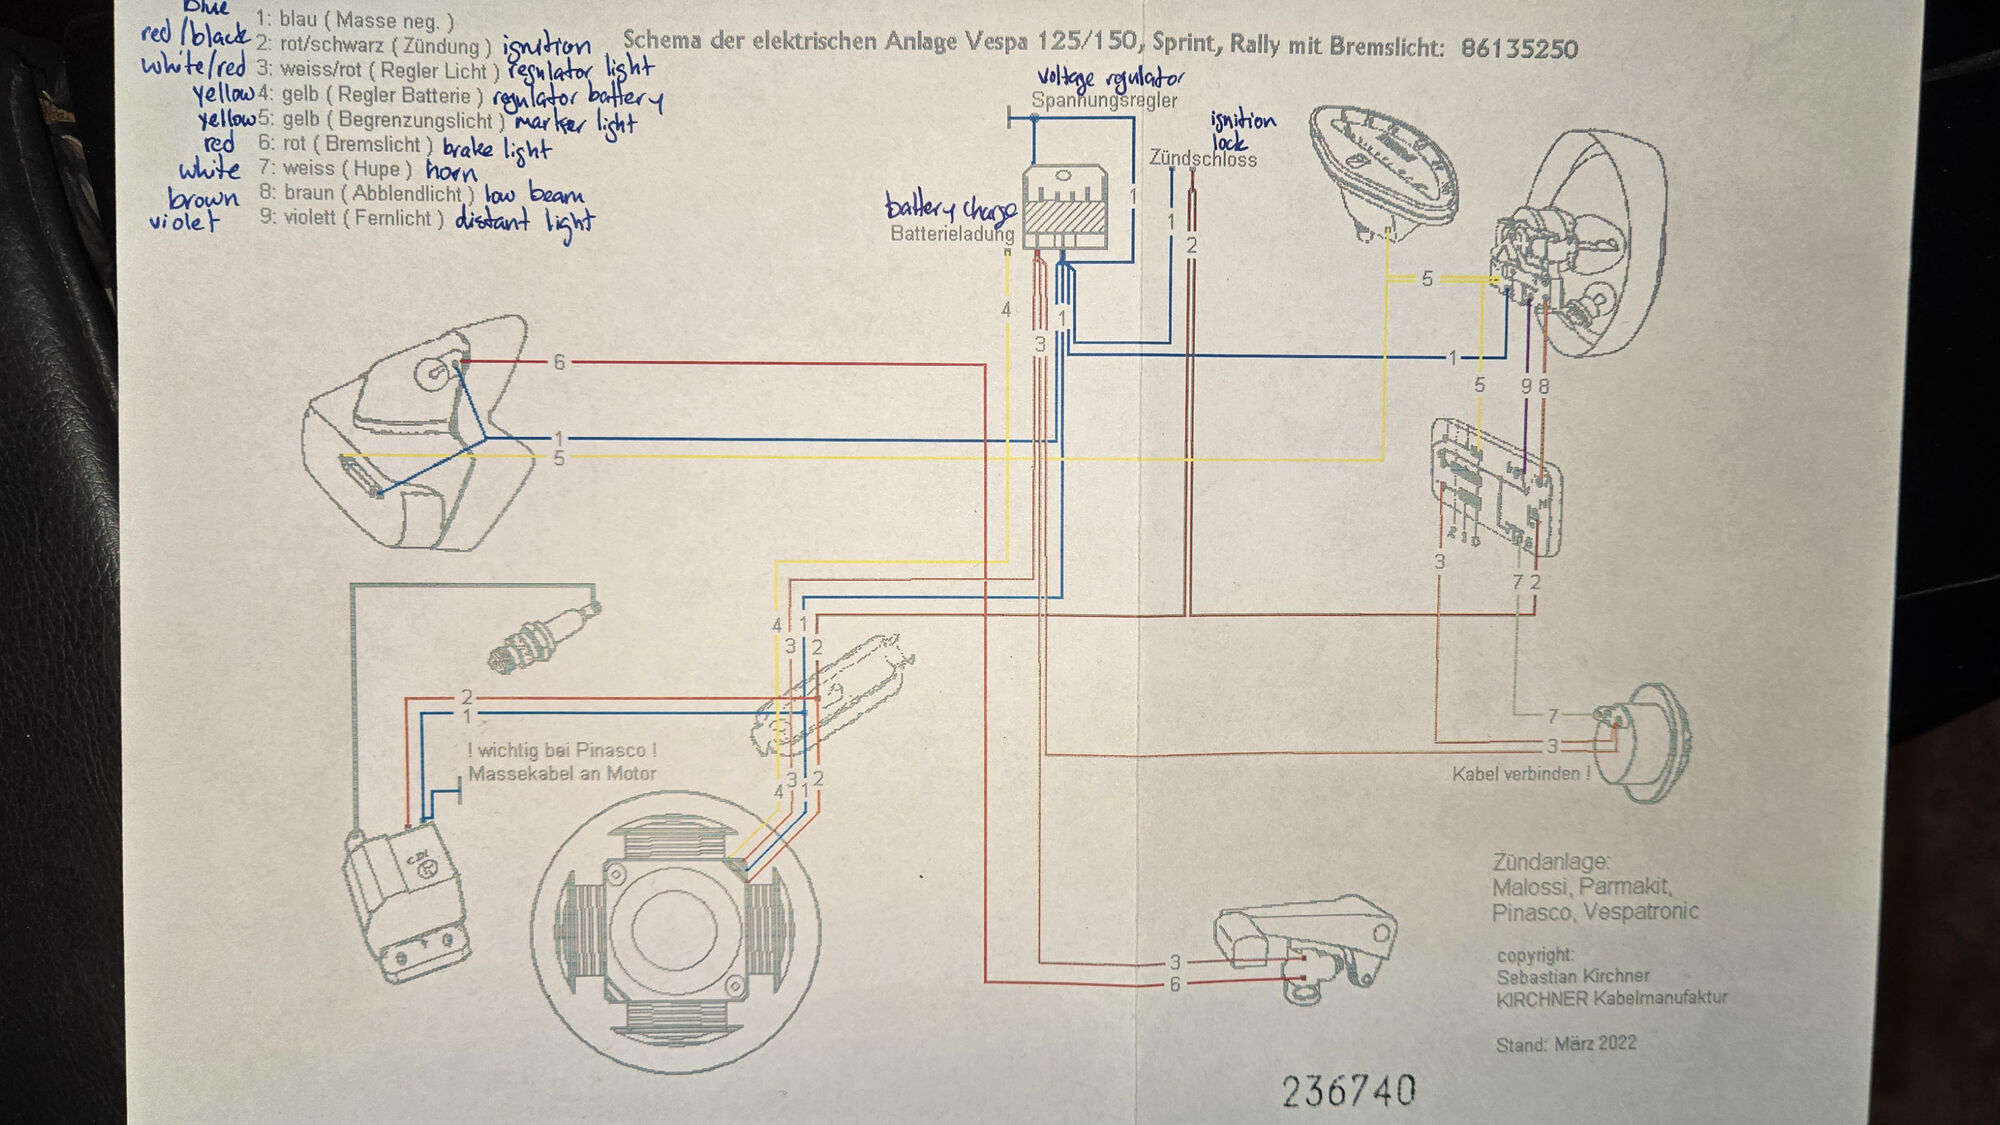 blue
1: blau ( Masse neg. )
red/black 2: rot/schwarz ( Zündung ) ignition
white/red 3: weiss/rot ( Regler Licht ) regulator light
yellow 4: gelb ( Regler Batterie ) regulator battery
yellow 5: gelb ( Begrenzungslicht ) marker light
red 6: rot ( Bremslicht ) brake light
white 7: weiss ( Hupe ) horn
brown 8: braun ( Abblendlicht ) low beam
violet 9: violett ( Fernlicht ) distant light
Schema der elektrischen Anlage Vespa 125/150, Sprint, Rally mit Bremslicht: 86135250
voltage regulator
Spannungsregler
ignition
lock
Zündschloss
battery charge
Batterieladung
1
1
2
4
3
1
5
1
5
9 8
6
1
5
3
7 2
4
1
3
2
2
1
! wichtig bei Pinasco !
Massekabel an Motor
4
3
1
2
CDI
7
3
Kabel verbinden !
3
6
Zündanlage:
Malossi, Parmakit,
Pinasco, Vespatronic
copyright:
Sebastian Kirchner
KIRCHNER Kabelmanufaktur
Stand: März 2022
236740